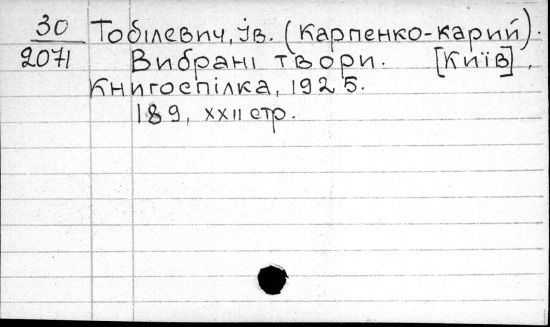 30 Тобілевич, Ів. (Карпенко-карий).
2071 Вибрані твори. [Київ],
Книгоспілка, 1925.
189, XXII стр.